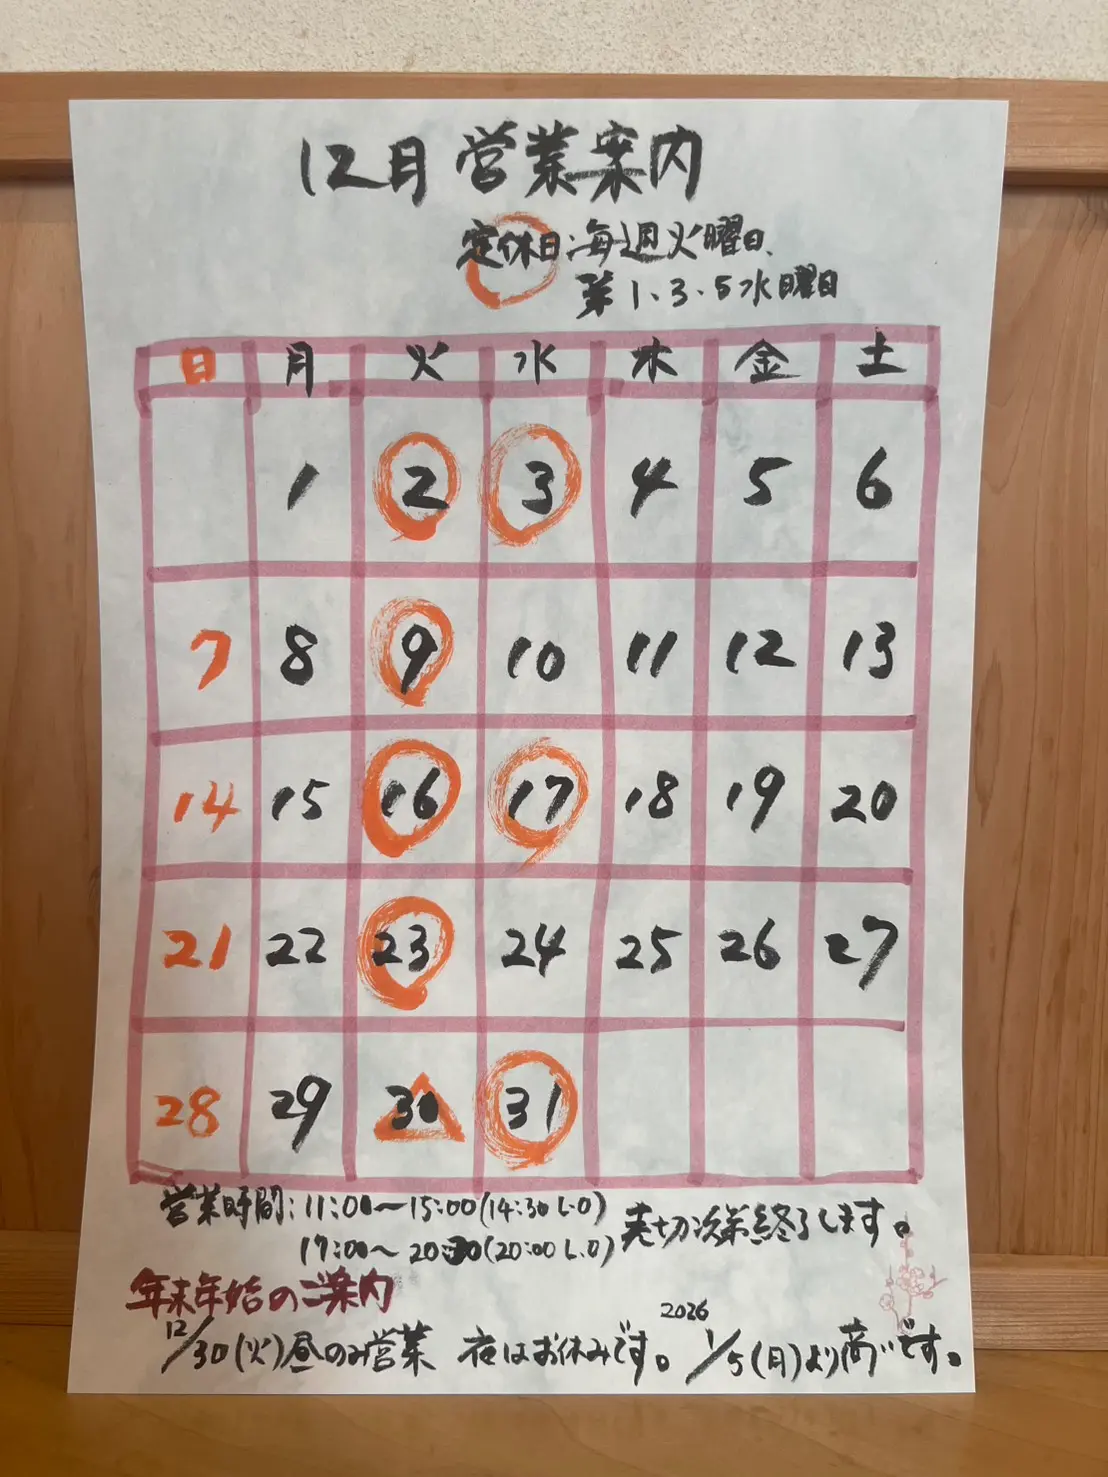 12月 営業案内
定休日:毎週火曜日、
第1.3.5水曜日
日 月 火 水 木 金 土
1 2 3 4 5 6
7 8 9 10 11 12 13
14 15 16 17 18 19 20
21 22 23 24 25 26 27
28 29 30 31
営業時間:11:00〜15:00(14:30 L.O)
17:00〜20:30(20:00 L.O)
売切次第終了します。
年末年始のご案内
12/30(火)昼のみ営業 夜はお休みです。
2026 1/5(月)より商いです。